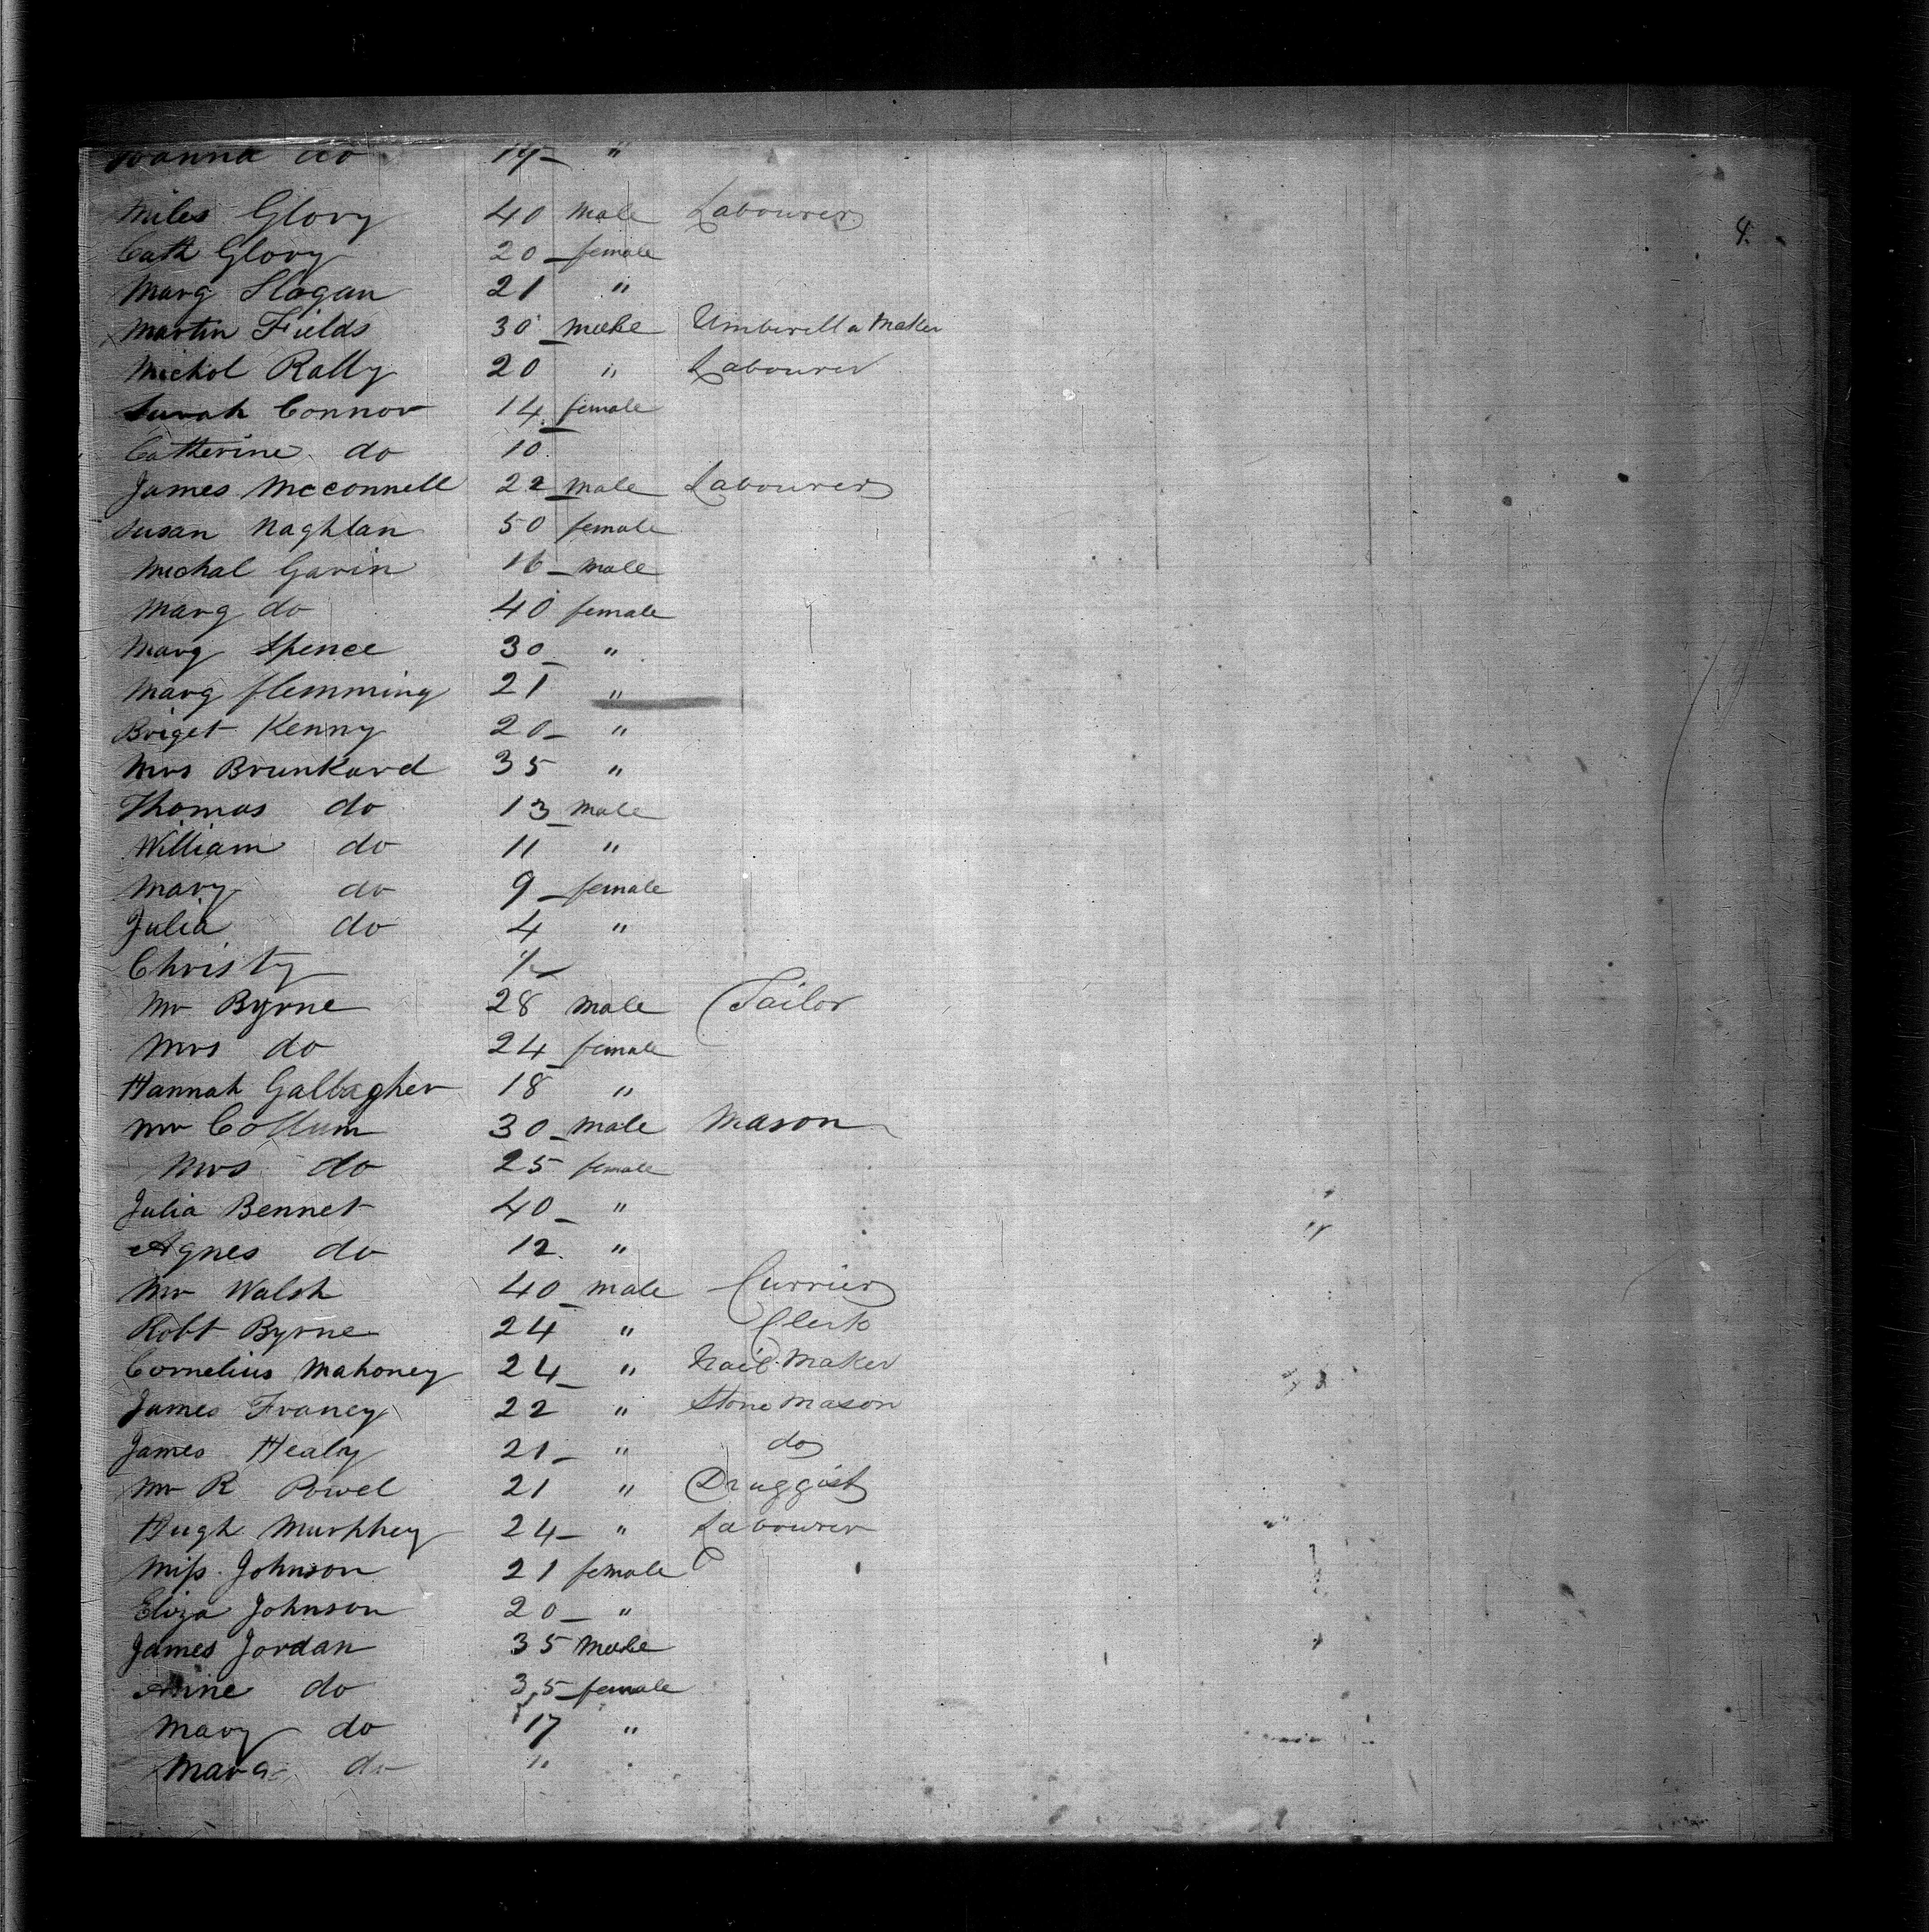 Joanna do 14 "
Miles Glovy 40 male Labourer
4.
Cath Glovy 20 female
Marg Slogan 21 "
Martin Fields 30 male Umberella Maker
Michol Rally 20 " Labourer
Sarah Connor 14 female
Catherine do 10
James Mcconnell 22 male Labourer
Susan Naghlan 50 female
Michal Gavin 16 male
Marg do 40 female
Marg Spence 30 "
Marg flemming 21 "
Briget Kenny 20 "
Mrs Brunkard 35 "
Thomas do 13 male
William do 11 "
Mary do 9 female
Julia do 4 "
Christy
Mr Byrne 28 male Tailor
Mrs do 24 female
Hannah Gallagher 18 "
Mr Collum 30 male Mason
Mrs do 25 female
Julia Bennet 40 "
Agnes do 12 "
Mr Walsh 40 male Currier
Robt Byrne 24 " Clerk
Cornelius Mahoney 24 " Nail Maker
James Franey 22 " Stone Mason
James Healy 21 " do
Mr R Powel 21 " Druggist
Hugh Murphey 24 " Labourer
Miss Johnson 21 female
Eliza Johnson 20 "
James Jordan 35 male
Anne do 35 female
Mary do 17 "
Marg do 11